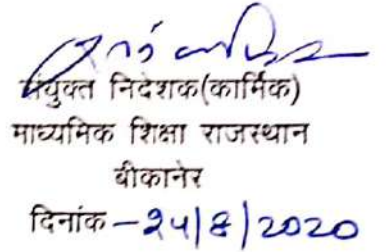 संयुक्त निदेशक(कार्मिक)
माध्यमिक शिक्षा राजस्थान
बीकानेर
दिनांक –24/8/2020